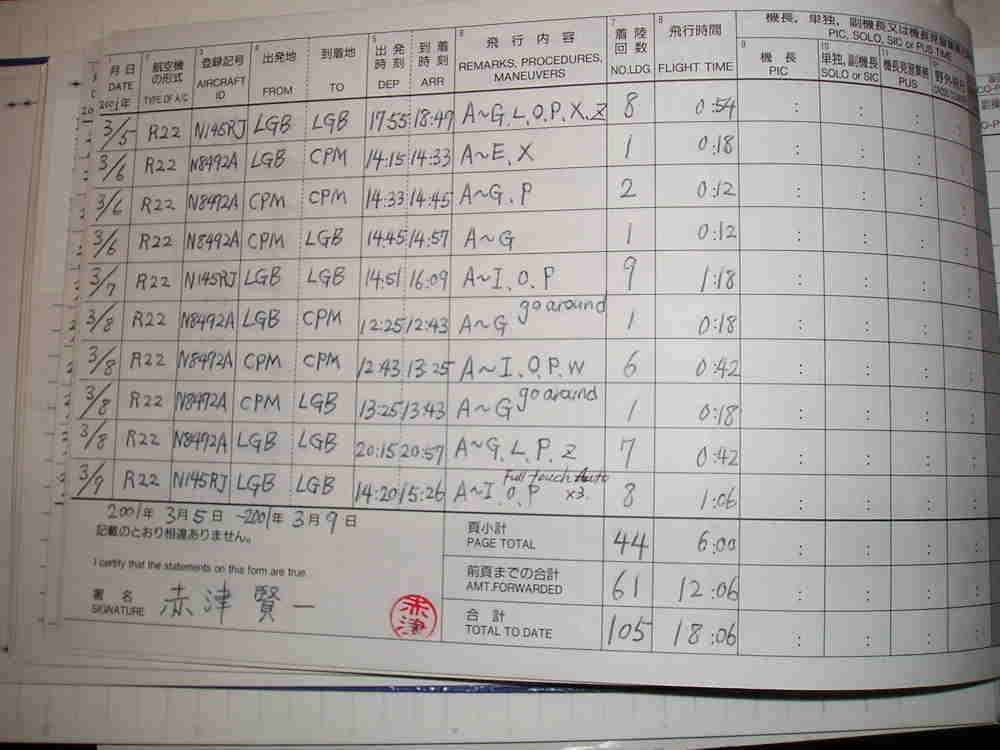 機長, 単独, 副機長又は機長見習業務
PIC, SOLO, SIC or PUS TIME
1 月日 DATE 2001年 2 航空機の形式 TYPE OF A/C 3 登録記号 AIRCRAFT ID 4 出発地 FROM 到着地 TO 5 出発時刻 DEP 到着時刻 ARR 6 飛行内容 REMARKS, PROCEDURES, MANEUVERS 7 着陸回数 NO.LDG 8 飛行時間 FLIGHT TIME 9 機長 PIC 10 単独, 副機長 SOLO or SIC 11 機長見習業務 PUS 野外飛行
3/5 R22 N145RJ LGB LGB 17:55 18:49 A~G, L, O, P, X, Z 8 0:54
3/6 R22 N8492A LGB CPM 14:15 14:33 A~E, X 1 0:18
3/6 R22 N8492A CPM CPM 14:33 14:45 A~G, P 2 0:12
3/6 R22 N8492A CPM LGB 14:45 14:57 A~G 1 0:12
3/7 R22 N145RJ LGB LGB 14:51 16:09 A~I, O, P 9 1:18
3/8 R22 N8492A LGB CPM 12:25 12:43 A~G go around 1 0:18
3/8 R22 N8492A CPM CPM 12:43 13:25 A~I, O, P, W 6 0:42
3/8 R22 N8492A CPM LGB 13:25 13:43 A~G go around 1 0:18
3/8 R22 N8492A LGB LGB 20:15 20:57 A~G, L, P, Z 7 0:42
3/9 R22 N145RJ LGB LGB 14:20 15:26 A~I, O, P Full touch Auto x3. 8 1:06
2001年 3月5日 ~2001年 3月9日
記載のとおり相違ありません。
I certify that the statements on this form are true.
署名 SIGNATURE 赤津賢一 赤津
頁小計 PAGE TOTAL 44 6:00
前頁までの合計 AMT.FORWARDED 61 12:06
合計 TOTAL TO DATE 105 18:06